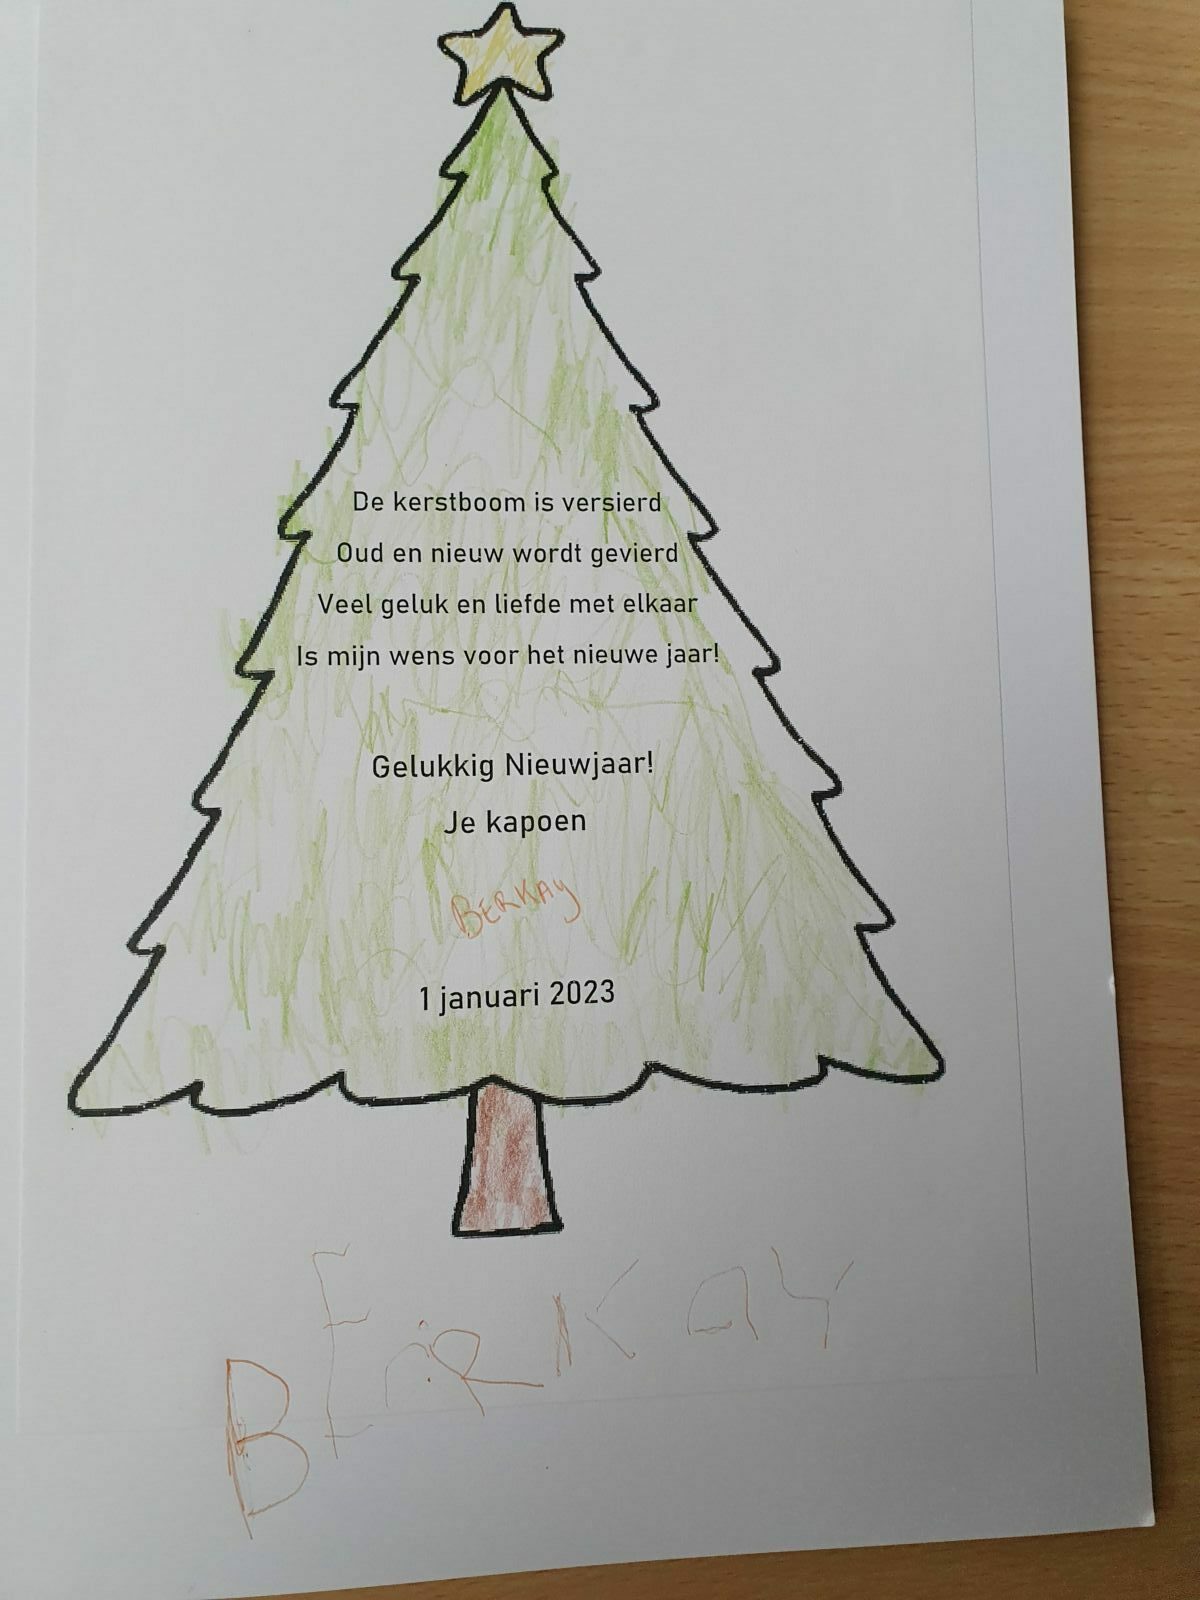 De kerstboom is versierd
Oud en nieuw wordt gevierd
Veel geluk en liefde met elkaar
Is mijn wens voor het nieuwe jaar!
Gelukkig Nieuwjaar!
Je kapoen
BERKAY
1 januari 2023
BERKAY